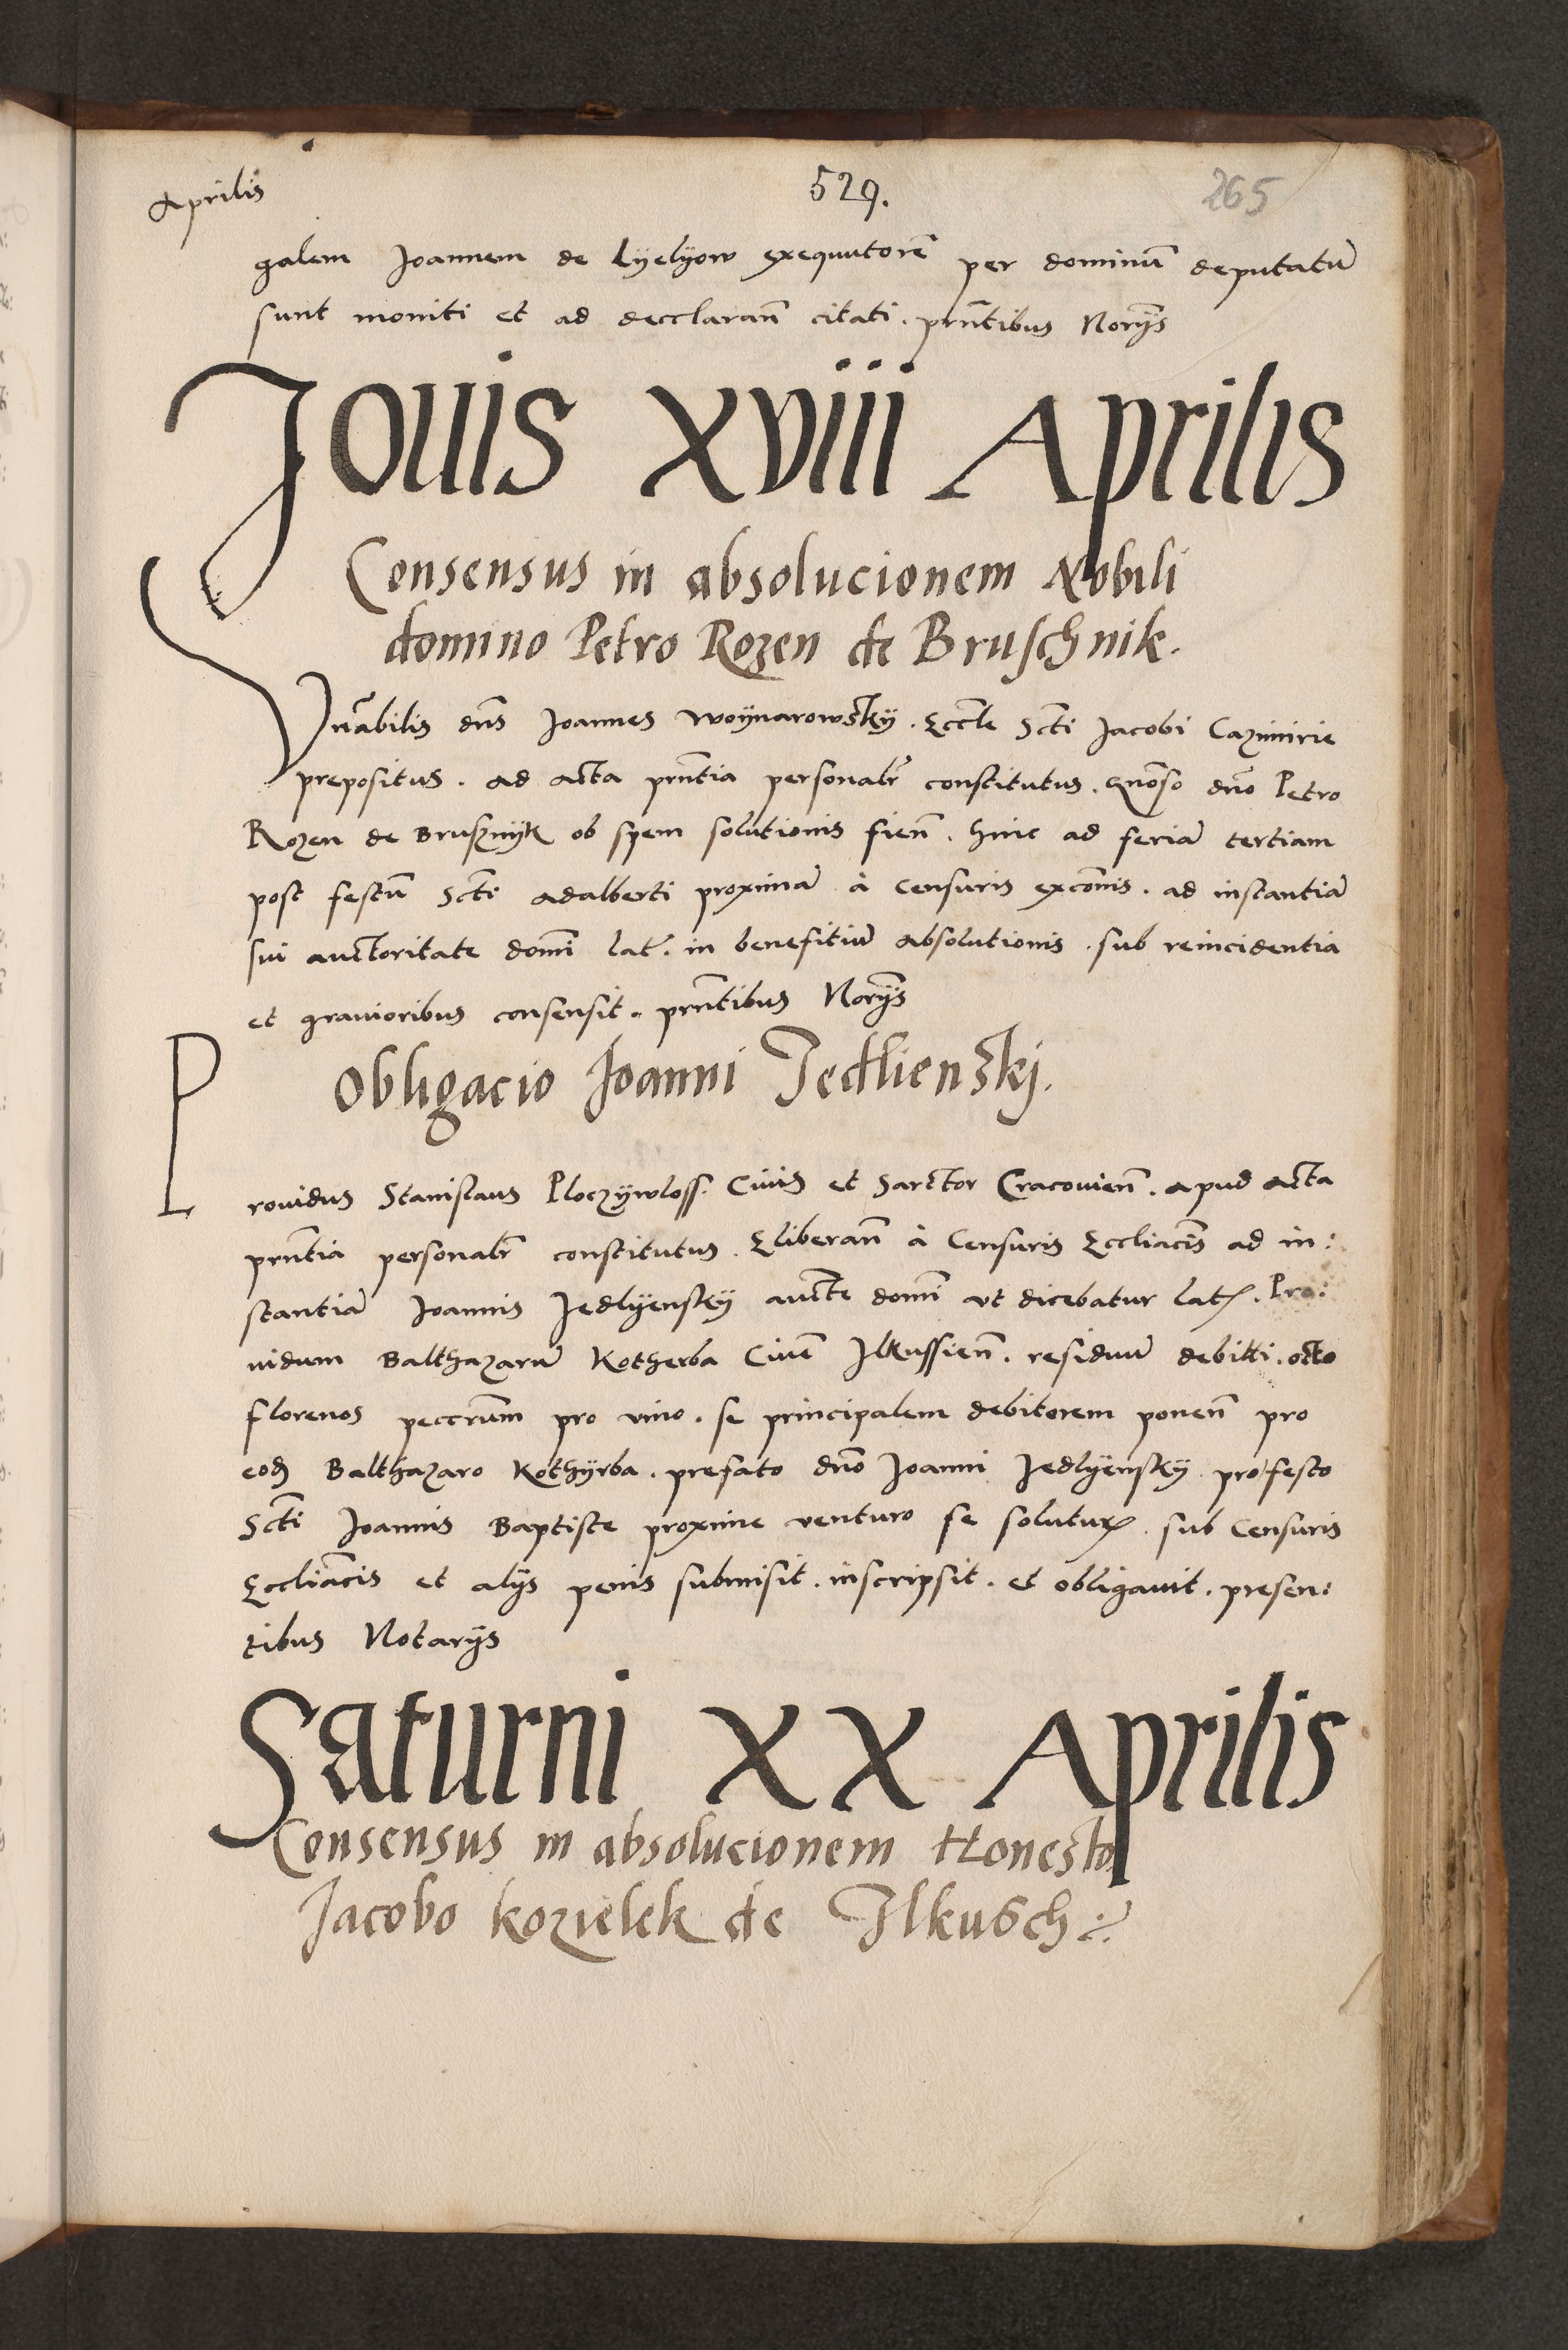 Aprilis
529.
265
galem Joannem de Lyelyow exequutorē per dominū deputatū
sunt moniti et ad decclarañ citati. prñtibus Norÿs
Jouis xviii Aprilis
Consensus in absolucionem Nobili
domino Petro Rozen de Bruschnik.
Vnābilis dñs Joannes Woÿnarowskÿ. Eccłe Scti Jacobi Cazimirie
prepositus. ad acta prñtia personalr̄ constitutus. gnōso dnō Petro
Rozen de Brusznÿk ob spem solutionis fieñ. hinc ad feriā tertiam
post festū Scti Adalberti proximā à censuris excōnis. ad instantiā
sui auctoritate domī lat̄. in benefitiū absolutionis. sub reincidentia
et grauioribus consensit. prñtibus Norÿs
Obligacio Joanni Jedlienskj.
Prouidus Stanislaus Ploczÿwloss. Ciuis et Sarctor Cracovieñ. apud acta
prñtia personalr̄ constitutus. Eliberañ à Censuris Eccliacīs ad in:
stantiā Joannis Jedlÿenskÿ aucte domī ut dicebatur latꝝ. Pro:
uidum Balthazarū Kotherba Ciuē Jlkussieñ. residuū debitti. octo
florenos peccrūm pro vino. se principalem debitorem poneñ pro
eod̄ Balthazaro Kothÿrba. prefato dnō Joanni Jedlÿenskÿ pro festo
Scti Joannis Baptiste proxime venturo se soluturꝝ. sub Censuris
Eccliācis et alÿs penis submisit. inscripsit. et obligauit. presen:
tibus Notarÿs
Saturni xx Aprilis
Consensus in absolucionem Honesto
Jacobo kozielek de Jlkusch